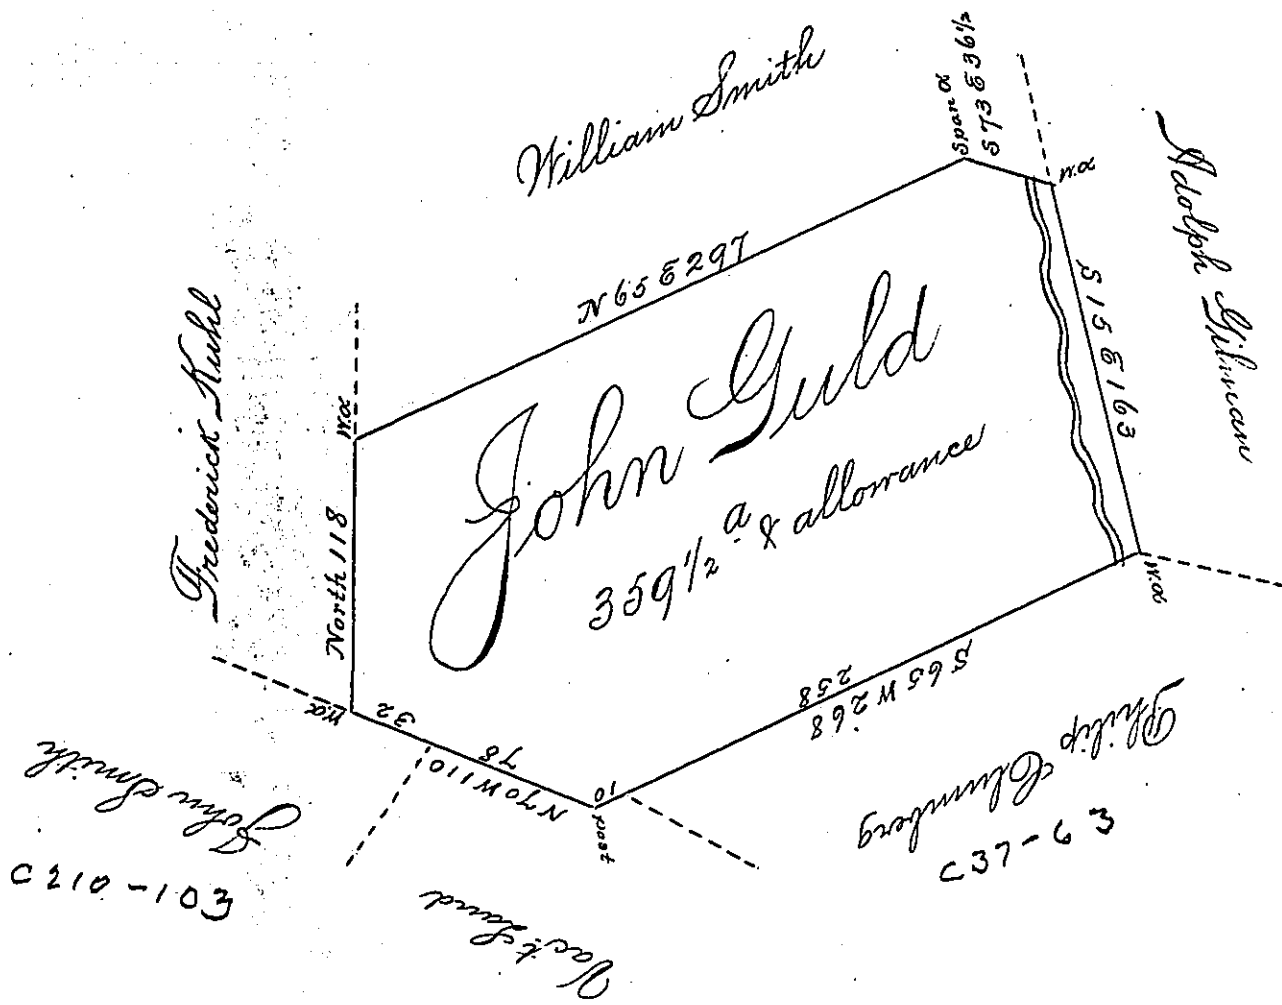 William Smith
Span. O
S 73 E 36 1/2
W.O
Adolph Gilman
S 15 E 163
N 65 E 297
Frederick Kuhl
W.O
North 118
John Guld
359 1/2 a. & allowance
W.O
W.O
32
78
N 70 W 110
10
Post
258
S 65 W 268
Philip Clumberg
C37-63
John Smith
C210-103
Vact. Land